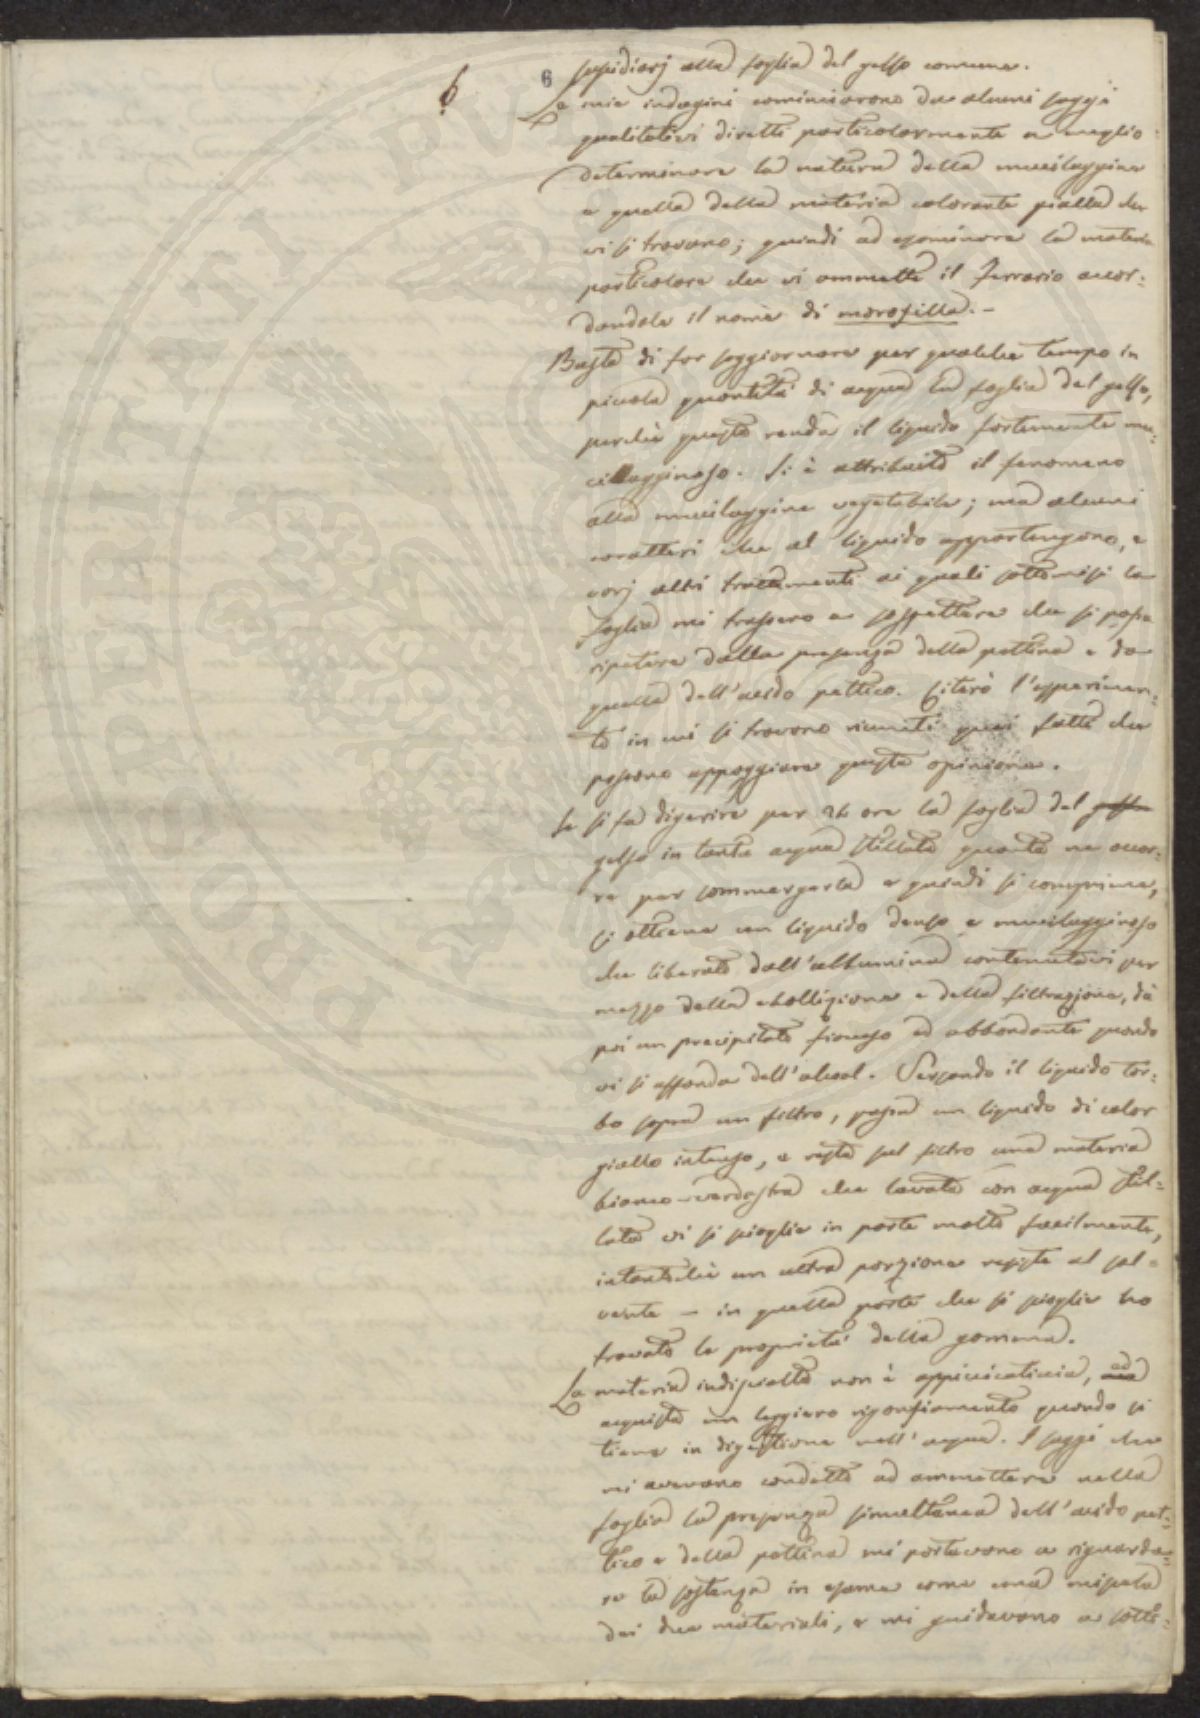 6
6
sussidiarj alla foglia del gelso comune.
Le mie indagini cominciarono da alcuni saggi
qualitativi diretti particolarmente a meglio
determinare la natura della mucilaggine
e quella della materia colorante gialla che
vi si trovano; quindi ad esaminare la materia
particolare che vi ammette il Ferrario accor:
dandole il nome di morosilla. –
Basta di far soggiornare per qualche tempo in
piccola quantità di acqua la foglia del gelso,
perchè questa renda il liquido fortemente mu:
cillagginoso. Si è attribuito il fenomeno
alla mucilaggine vegetabile; ma alcuni
caratteri che al liquido appartengono, e
varj altri trattamenti ai quali sottomisi la
foglia mi trassero a sospettare che si possa
ripetere dalla presenza della pettina e da
quella dell'acido pettico. Citerò l'esperimen:
to in cui si trovano riuniti quei fatti che
possono appoggiare questa opinione.
Se si fa digerire per 24 ore la foglia del gelso
gelso in tanta acqua stillata quanta ne occor:
re per sommergerla e quindi si comprime,
si ottiene un liquido denso e mucilagginoso
che liberato dall'albumina contenutavi per
mezzo della ebollizione e della filtrazione, dà
poi un precipitato fioccoso ed abbondante quando
vi si affonda dell'alcool. Versando il liquido tor:
bo sopra un filtro, passa un liquido di color
giallo intenso, e resta sul filtro una materia
bianco-verdastra che lavata con acqua stil:
lata vi si scioglie in parte molto facilmente,
intantochè un altra porzione resiste al sol:
vente – in quella parte che si scioglie ho
trovato le proprietà della gomma.
La materia indisciolta non è appiccicaticcia, ed
acquista un leggiero rigonfiamento quando si
tiene in digestione nell'acqua. I saggi che
mi avevano condotto ad ammettere nella
foglia la presenza simultanea dell'acido pet:
tico e della pettina mi portavano a riguarda:
re la sostanza in esame come una miscela
dei due materiali, e mi guidavano a sotto:
PROSPERITATI PVB